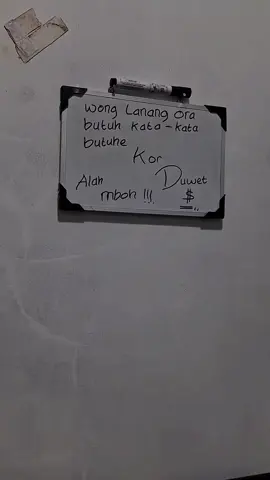 wong Lanang ora
butuh kata-kata
butuhe
Kor
Alah Duwet
mboh !!! $